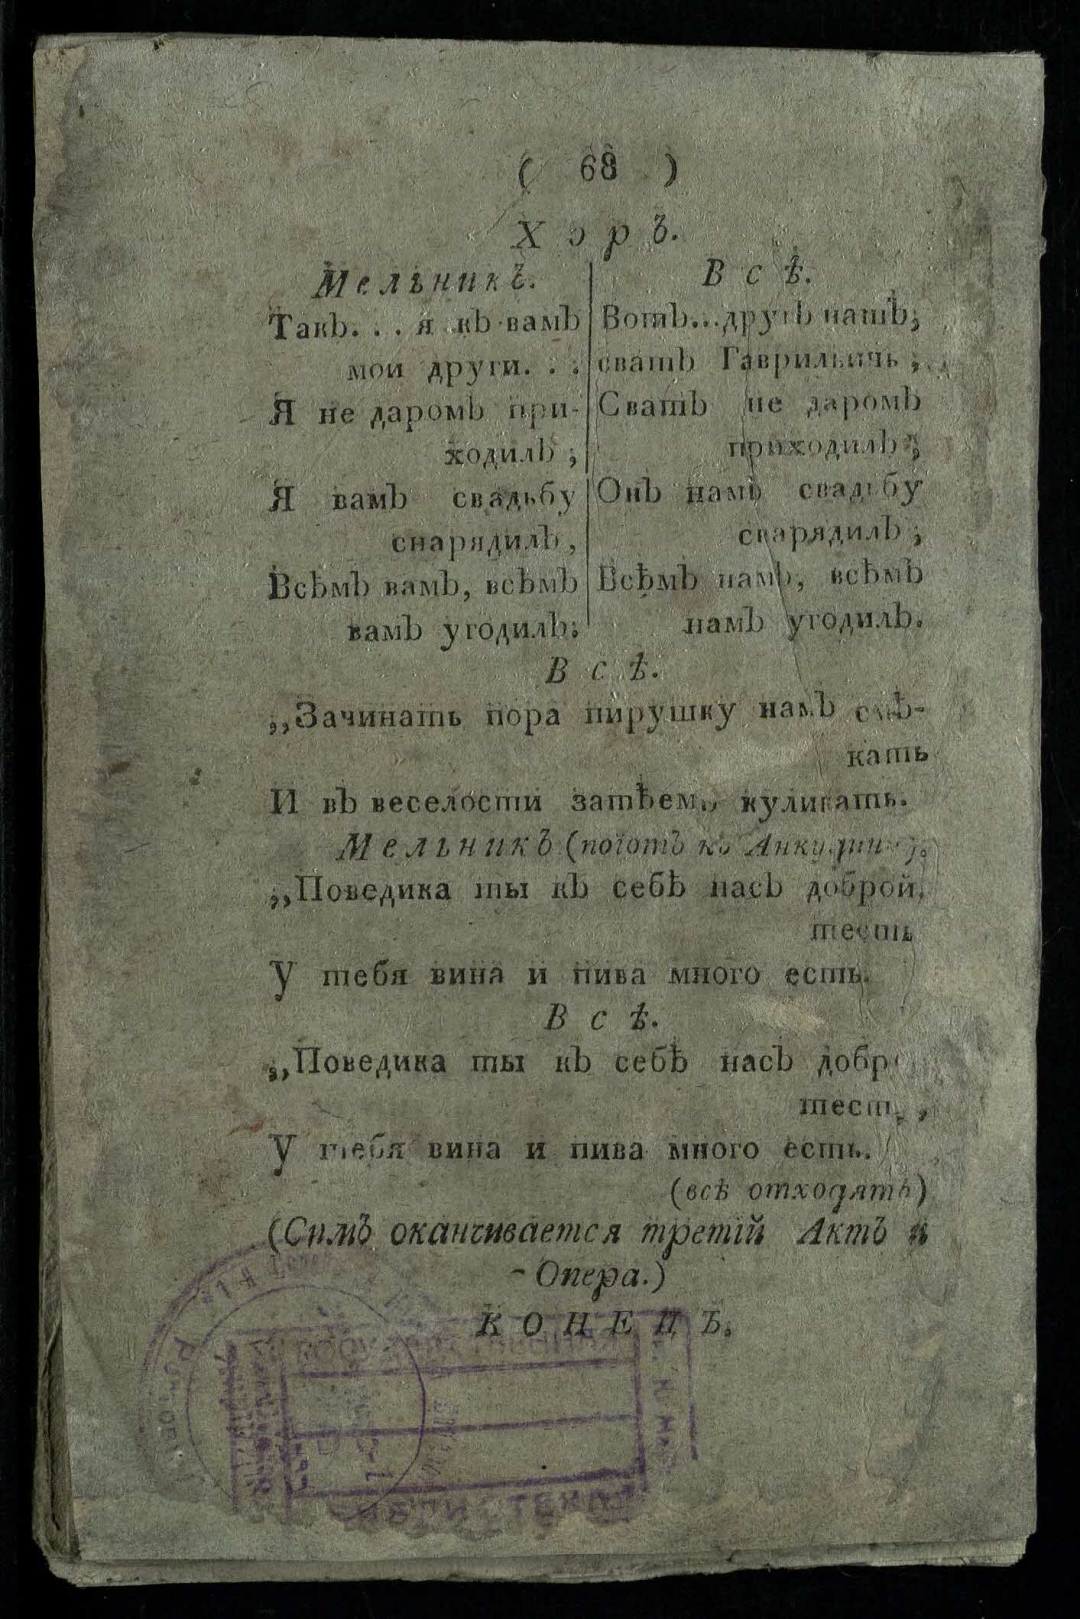 ( 68 )
Хоръ.
Мельникъ.
Такъ. . . я къ вамъ
мои други. . .
Я не даромъ при-
ходилъ ;
Я вамъ свадьбу
снарядилъ ,
Всѣмъ вамъ, всѣмъ
вамъ угодилъ;
Всѣ.
Вотъ...другъ нашъ;
сватъ Гаврильичь ;
Сватъ не даромъ
приходилъ ;
Онъ намъ свадьбу
снарядилъ ;
Всѣмъ намъ, всѣмъ
намъ угодилъ.
Всѣ.
„Зачинать пора пирушку намъ смѣ-
кать
И въ веселости затѣемъ куликать.
Мельникъ (поютъ къ
„Поведика ты къ себѣ насъ доброй,
тесть
У тебя вина и пива много есть.
Всѣ.
„Поведика ты къ себѣ насъ
тесть ,
У тебя вина и пива много есть.
(всѣ отходятъ)
(Симъ оканчивается третій Актъ и
Опера.)
КОНЕЦЪ.